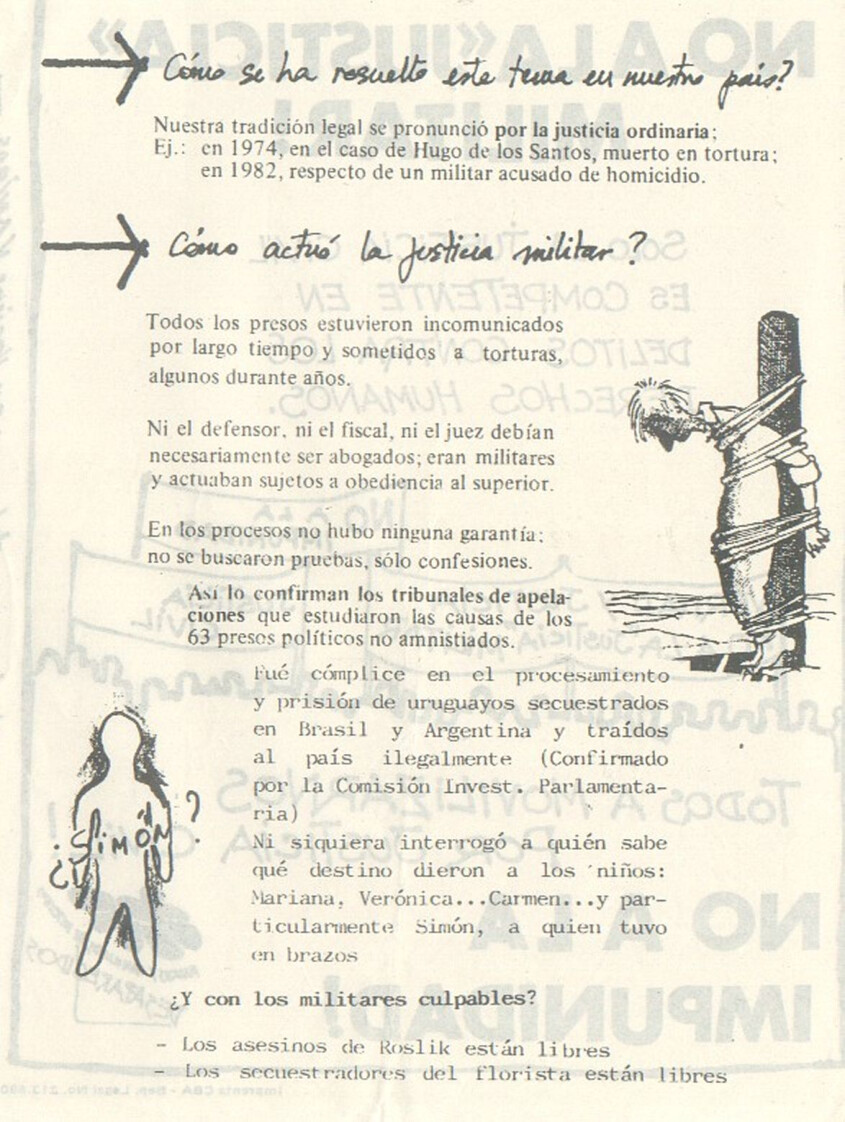 Cómo se ha resuelto este tema en nuestro país?
Nuestra tradición legal se pronunció por la justicia ordinaria;
Ej.: en 1974, en el caso de Hugo de los Santos, muerto en tortura;
en 1982, respecto de un militar acusado de homicidio.
Cómo actuó la justicia militar?
Todos los presos estuvieron incomunicados
por largo tiempo y sometidos a torturas,
algunos durante años.
Ni el defensor, ni el fiscal, ni el juez debían
necesariamente ser abogados; eran militares
y actuaban sujetos a obediencia al superior.
En los procesos no hubo ninguna garantía;
no se buscaron pruebas, sólo confesiones.
Así lo confirman los tribunales de apela-
ciones que estudiaron las causas de los
63 presos políticos no amnistiados.
Fué cómplice en el procesamiento
y prisión de uruguayos secuestrados
en Brasil y Argentina y traídos
al país ilegalmente (Confirmado
por la Comisión Invest. Parlamenta-
ria)
Ni siquiera interrogó a quién sabe
qué destino dieron a los niños:
Mariana, Verónica...Carmen...y par-
ticularmente Simón, a quien tuvo
en brazos
¿SIMÓN?
¿Y con los militares culpables?
- Los asesinos de Roslik están libres
- Los secuestradores del florista están libres
NO A LA «JUSTICIA»
MILITAR!
SOLO JUSTICIA CIVIL
ES COMPETENTE EN
DELITOS CONTRA LOS
DERECHOS HUMANOS.
TODOS A MOVILIZARNOS
POR JUSTICIA
NO A LA
IMPUNIDAD!